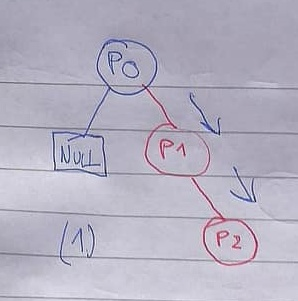 P0
NULL
P1
(1)
P2